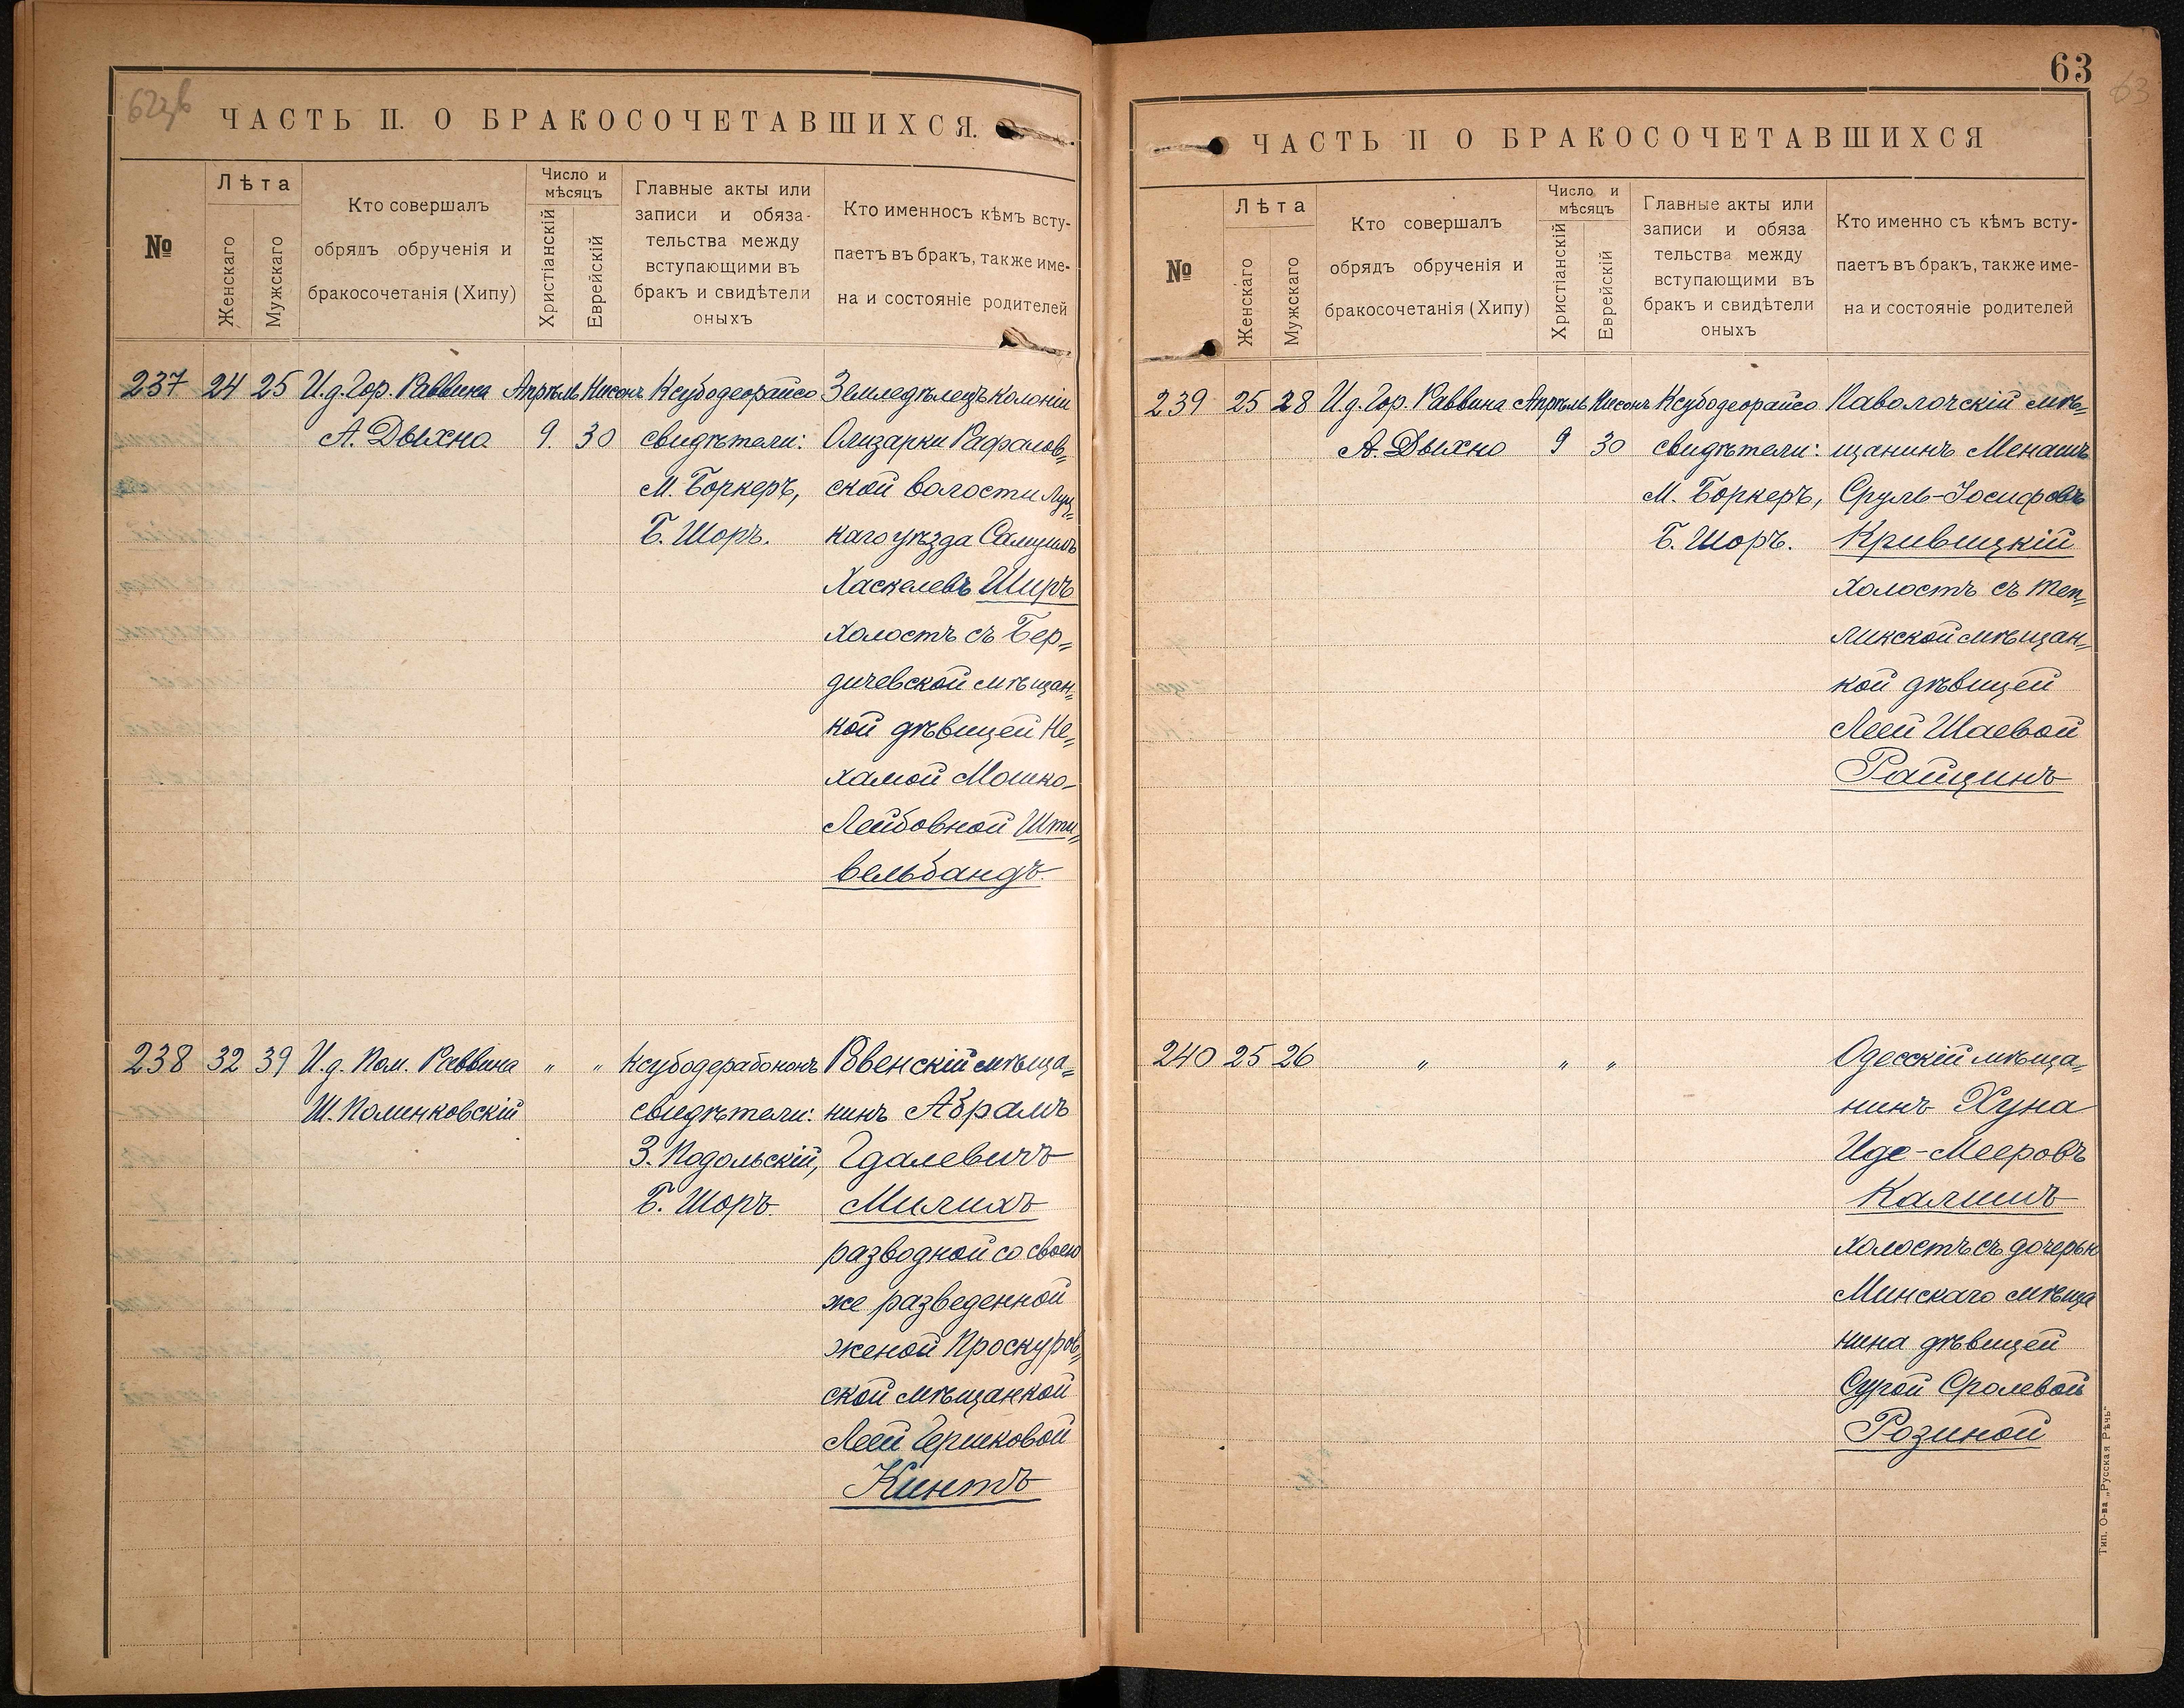 62об
ЧАСТЬ II. О БРАКОСОЧЕТАВШИХСЯ.
№
Лѣта
Женскаго
Мужскаго
Кто совершалъ
обрядъ обрученія и
бракосочетанія (Хипу)
Число и
мѣсяцъ
Христіанскій
Еврейскій
Главные акты или
записи и обяза-
тельства между
вступающими въ
бракъ и свидѣтели
оныхъ
Кто именносъ кѣмъ всту-
паетъ въ бракъ, также име-
на и состояніе родителей
237 24 25 И.д. Гор. Раввина Апрѣль Нисонъ Ксубодеорайсо Земледѣлецъ колоніи
А. Дыхно 9. 30 свидѣтели: Олизарки Рафалов=
М. Боркеръ, ской волости Луц=
Б. Шоръ. каго уѣзда Самуилъ
Хаскелевъ Ширъ
холостъ съ Бер=
дичевской мѣщан=
кой дѣвицей Не=
хамой Мошко-
Лейбовной Шти=
вельбандъ.
238 32 39 И.д. Пом. Раввина " " Ксубодерабононъ Ровенскій мѣща=
Ш. Полинковскій свидѣтели: нинъ Абрамъ
З. Подольскій, Гдалевичъ
Б. Шоръ. Милихъ
разводной со своею
же разведенной
женой Проскуров=
ской мѣщанкой
Леей Гершковой
Кинтъ
63
63
ЧАСТЬ II О БРАКОСОЧЕТАВШИХСЯ
№
Лѣта
Женскаго
Мужскаго
Кто совершалъ
обрядъ обрученія и
бракосочетанія (Хипу)
Число и
мѣсяцъ
Христіанскій
Еврейскій
Главные акты или
записи и обяза
тельства между
вступающими въ
бракъ и свидѣтели
оныхъ
Кто именно съ кѣмъ всту-
паетъ въ бракъ, также име-
на и состояніе родителей
239 25 28 И.д. Гор. Раввина Апрѣль Нисонъ Ксубодеорайсо Паволочскій мѣ=
А. Дыхно 9 30 свидѣтели: щанинъ Менашъ
М. Боркеръ, Сруль-Іосифовъ
Б. Шоръ. Кривицкій
холостъ съ Теп=
ликской мѣщан=
кой дѣвицей
Леей Шаевой
Райцинъ
240 25 26 " " " Одесскій мѣща=
нинъ Хуна
Иде-Мееровъ
Калишъ
холостъ съ дочерью
Минскаго мѣща
нина дѣвицей
Сурой Сролевой
Розиной
Тип. О-ва „Русская Рѣчь"